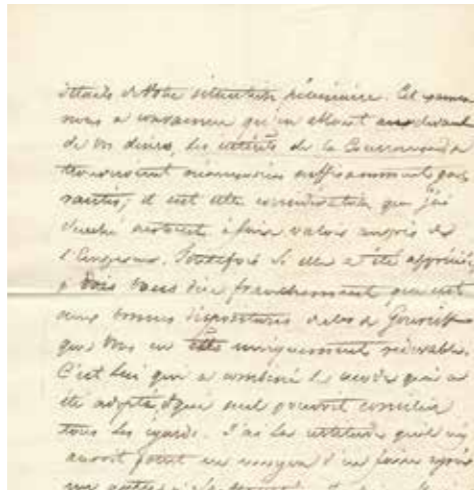 détails de Votre situation pécuniaire. Cet examen
nous a convaincu qu'en allant au devant
de vos désirs, les intérêts de la Couronne
trouveroient néanmoins suffisamment ga-
rantis; c'est cette considération que j'ai
surtout à faire valoir auprès de
l'Empereur. Toutefois si elle a été appréciée
je dois Vous dire franchement que c'est
aux bonnes dispositions de
que Vous en êtes uniquement redevable.
C'est lui qui a combiné le mode qui a
été adopté, & qui seul pouvoit concilier
tous les égards. J'ai la certitude qu'il n'y
auroit point eu moyen d'en faire agréer
un autre